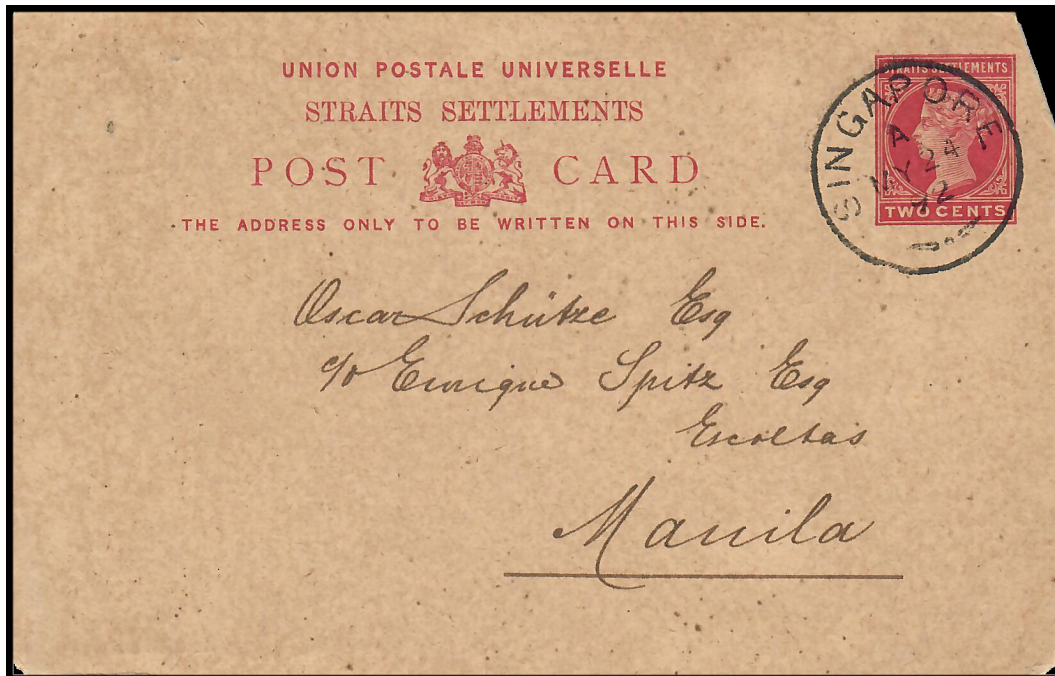 UNION POSTALE UNIVERSELLE
STRAITS SETTLEMENTS
POST CARD
THE ADDRESS ONLY TO BE WRITTEN ON THIS SIDE.
STRAITS SETTLEMENTS
TWO CENTS
SINGAPORE
A
MY 24
92
Oscar Schütze Esq
c/o Enrique Spitz Esq
Escoltas
Manila